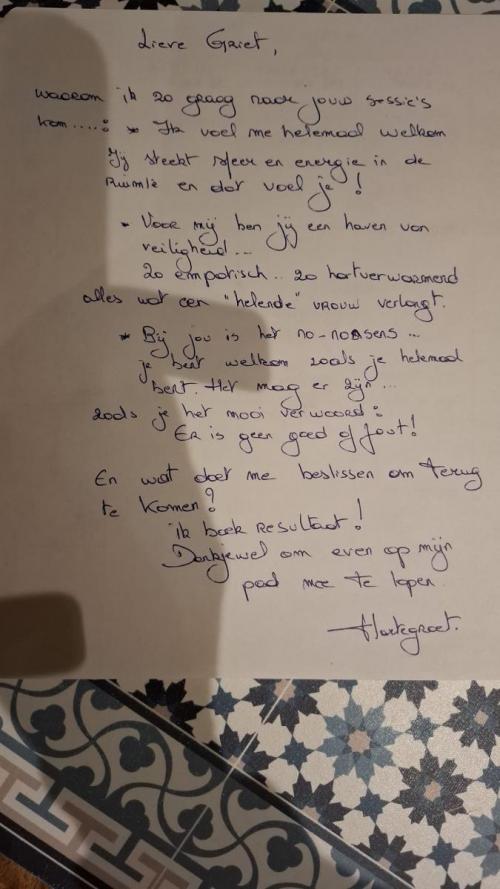 Lieve Griet,
waarom ik zo graag naar jouw sessie's
kom....: * Ik voel me helemaal welkom
Jij steekt sfeer en energie in de
Ruimte en dat voel je!
* Voor mij ben jij een haven van
veiligheid...
zo empatisch.. zo hartverwarmend
alles wat een "helende" vrouw verlangt.
* Bij jou is het no-nonsens...
je bent welkom zoals je helemaal
bent. Het mag er zijn...
zoals je het mooi verwoord:
Er is geen goed of fout!
En wat doet me beslissen om terug
te komen?
ik boek resultaat!
Dankjewel om even op mijn
pad mee te lopen.
Hartegroet.